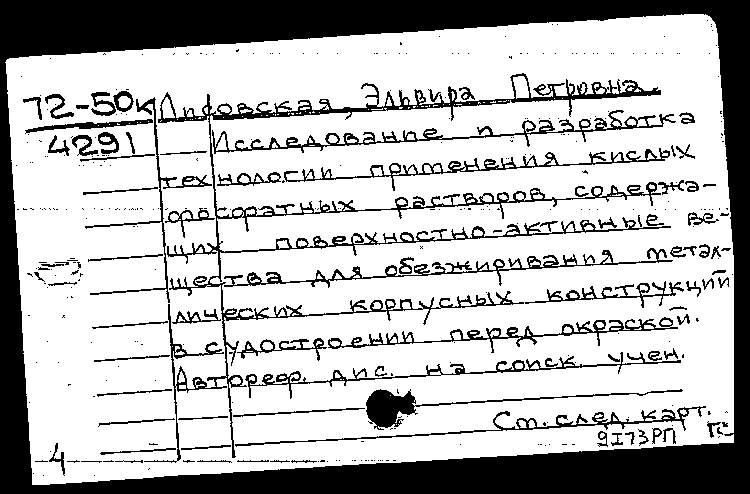 72-50к Лисовская, Эльвира Петровна.
4291 Исследование и разработка
технологии применения кислых
фосфоратных растворов, содержа-
щих поверхностно-активные ве-
щества для обезжиривания метал-
лических корпусных конструкций
в судостроении перед окраской.
Автореф. дис. на соиск. учен.
См. след. карт.
9I73РП
4